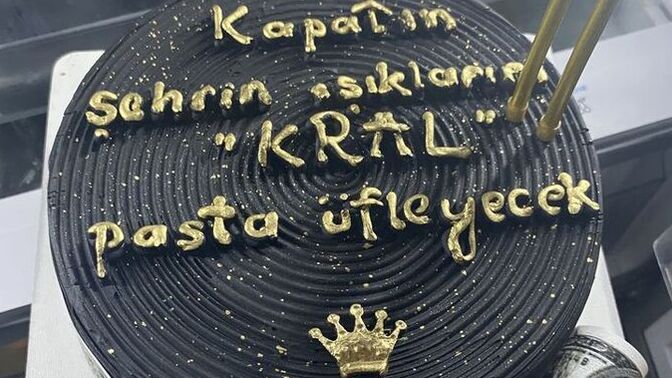 Kapatın
Şehrin ışıklarını
"KRAL"
pasta üfleyecek